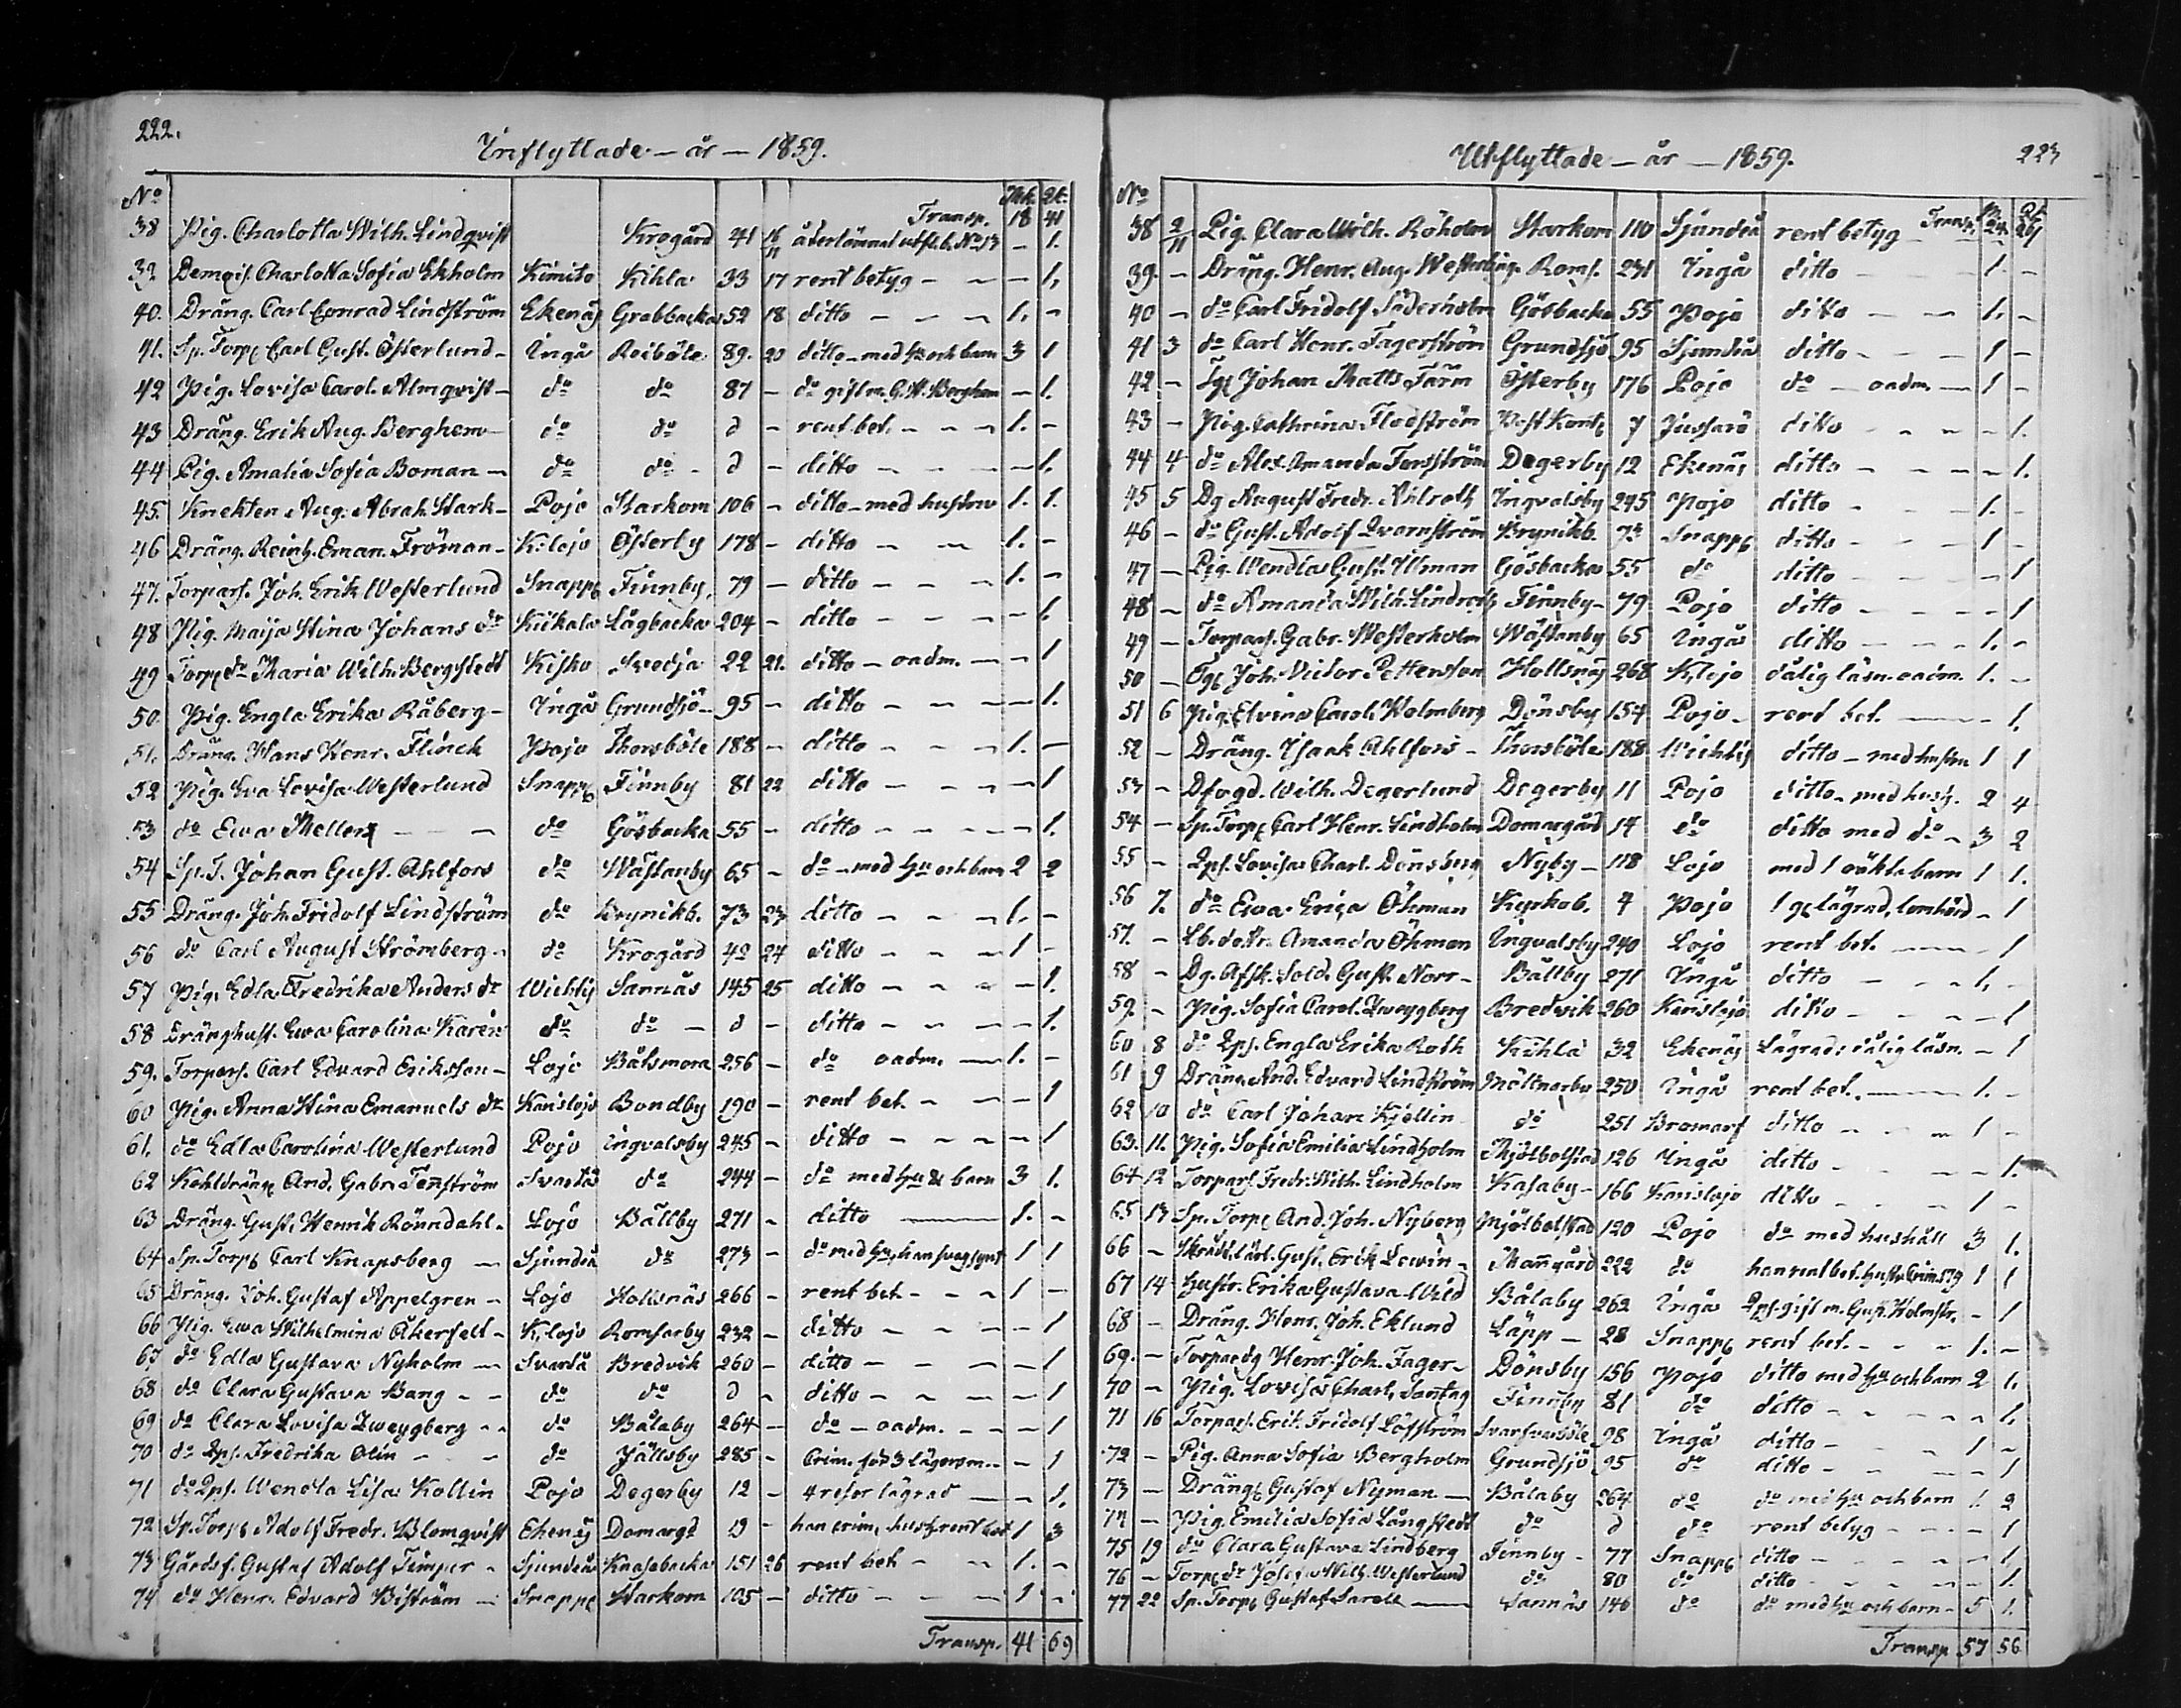 222.
Inflyttade – år – 1859.
No Mk. Qk.
Transp. 18 41
38 Pig. Charlotta Wilh. Lindqvist Krogård 41 16/11 återlämnat utfl. b. No 13 – 1.
39 Demois. Charlotta Sofia Ekholm Kimito Kihla 33 17 rent betyg – – – 1.
40. Dräng. Carl Conrad Lindström Ekenäs Grabbacka 52 18 ditto – – – 1. –
41. Sp. Torp. Carl Gust. Österlund – Ingå Reiböle 89. 20 ditto – med hu och barn 3 1
42 Pig. Lovisa Carol. Almqvist – do do 87 – do gift m. G. A. Berghem – 1.
43 Dräng. Erik Aug. Berghem – do do d – rent bet. – – – 1. –
44 Pig. Amalia Sofia Boman – do do – d – ditto – – – – 1.
45. Knekten Aug. Abrah. Stark – Pojo Starkom 106 – ditto – med hustru 1. 1.
46 Dräng. Reinh. Eman. Fröman – K:lojo Österby 178 – ditto – – – 1. –
47. Torpars. Joh. Erik Westerlund Snapp. Finnby 79 – ditto – – – 1. –
48 Pig. Maija Stina Johans dr Kiikala Lågbacka 204 – ditto – – – – 1.
49 Torp. dr Maria Wilh. Bergstedt Kisko Svedja 22 21. ditto – oadm. – – 1
50. Pig. Engla Erika Råberg – Ingå Grundsjö – 95 – ditto – – – – 1.
51. Dräng. Hans Henr. Flinck Pojo Thorsböle 188 – ditto – – – 1. –
52 Pig. Eva Lovisa Westerlund Snapp. Finnby 81 22 ditto – – – – 1
53 do Ewa Mellen – – do Gösbacka 55 – ditto – – – – 1.
54 Sp. T. Johan Gust. Ahlfors do Wästanby 65 – do – med hu och barn 2 2
55 Dräng. Joh. Fridolf Lindström do Brynikb. 73 23 ditto – – – 1. –
56 do Carl August Strömberg – do Krogård 42 24 ditto – – – 1 –
57 Pig. Edla Fredrika Anders dr Wichtis Sannäs 145 25 ditto – – – – 1.
58 Dränghust. Ewa Carolina Karén do do – d – ditto – – – – 1.
59. Torpars. Carl Edvard Eriksson – Lojo Båtsmora 256 – do oadm. – 1. –
60 Pig. Anna Stina Emanuels dr Karislojo Bondby 190 – rent bet. – – – 1
61. do Edla Carolina Westerlund Pojo Ingvalsby 245 – ditto – – – – 1
62 Kohldräng And. Gabr. Tennström Svartå do 244 – do med hu & barn 3 1.
63 Dräng. Gust. Henrik Rönndahl – Lojo Bällby 271 – ditto – 1. –
64 Sp. Torp. Carl Knapsberg – Sjundeå do 273 – do med hu, han svag synt 1 1
65 Dräng. Joh. Gustaf Appelgren – Lojo Hollsnäs 266 – rent bet. – – – 1 –
66 Pig. Ewa Wilhelmina Åkerfelt – K:lojo Romsarby 232 – ditto – – – – 1
67 do Edla Gustava Nyholm – Svartå Bredvik 260 – ditto – – – – 1
68 do Clara Gustava Bang – – do do d – ditto – – – – 1
69 do Clara Lovisa Zweygberg – – do Bålaby 264 – do – oadm. – – – 1
70 do Qps. Fredrika Olin – – do Jällsby 285 – Crim. för 3 lägersm. – – 1
71 do Qps. Wendla Lisa Kollin Pojo Degerby 12 – 4 resor lägrad – – 1.
72 Sp. Torp. Adolf Fredr. Blomqvist Ekenäs Domargd 19 – han crim., hust. rent bet. 1 3
73 Gårdsf. Gustaf Adolf Timper – Sjundeå Knasebacka 151 26 rent bet. – – 1. –
74 do Henr. Edvard Biström – Snapp. Starkom 105 – ditto – – – 1 –
Transp. 41 69
Utflyttade – år – 1859. 223
No M. Qk.
Transp. 24 21
38 2/11 Pig. Clara Wilh. Röholm Starkom 110 Sjundeå rent betyg
39. – Dräng. Henr. Aug. Westerling. Roms. 231 Ingå ditto – – – 1. –
40 – do Carl Fridolf Söderholm Gösbacka 55 Pojo ditto – – 1. –
41 3 do Carl Henr. Fagerström Grundsjö 95 Sjundeå ditto – – – 1 –
42 – Tg. Johan Matts. Färm Österby 176 Pojo do – oadm. – 1 –
43 – Pig. Cathrina Flodström Post Kont. 7 Jussarö ditto – – – – 1.
44 4 do Alex. Amanda Forsström Degerby 12 Ekenäs ditto – – – – 1.
45 5 Dg August Fredr. Ahlroth Ingvalsby 245 Pojo ditto – – – 1. –
46 – do Gust. Adolf Qvarnström Brynikb. 73 Snapp. ditto – – – 1 –
47 – Pig. Wendla Gust. Ulman Gösbacka 55 do ditto – – – – 1
48 – do Amanda Wilh. Lindroth Finnby – 79 Pojo ditto – – – – 1
49 – Torpars. Gabr. Westerholm Wästanby 65 Ingå ditto – – – 1. –
50 – Tg. Joh. Victor Petterson Hollsnäs 268 K:lojo dålig läsn. oadm. 1. –
51 6 Pig. Elvina Carol. Holmberg Dönsby 154 Pojo – rent bet. – – 1.
52 – Dräng. Isaak Ahlfors – Thorsböle 188 Wichtis ditto – med hustru 1 1
53 – Dfogd. Wilh. Degerlund Degerby 11 Pojo ditto – med hush. 2 4
54 – Sp. Torp. Carl Henr. Lindholm Domargård 14 do ditto med do – 3 2
55 – Qps. Lovisa Charl. Dönsberg Nyby – 118 Lojo med 1 oäkta barn 1 1.
56 7. do Ewa Erica Öhman Kyrkob. 4 Pojo 1 g. lägrad, lomhörd – 1
57. – Lb. dottr. Amanda Öhman Ingvalsby 240 Lojo rent bet. – – 1
58 – Dg. Afsk. Sold. Gust. Norr – Bällby 271 Ingå ditto – – – 1. –
59. – Pig. Sofia Carol. Zweygberg Bredvik 260 Karislojo ditto – – – – 1
60 8 do Qps. Engla Erika Roth Kihla 32 Ekenäs Lägrad: dålig läsn. – 1
61 9 Dräng. And. Edvard Lindström Mältnarby 250 Ingå rent bet. – 1. –
62 10 do Carl Johan Kjellin do 251 Bromarf ditto – – – 1 –
63. 11. Pig. Sofia Emilia Lindholm Mjölbolstad 126 Ingå ditto – – – – 1.
64 12 Torpars. Fredr. Wilh. Lindholm Kasaby – 166 Karislojo ditto – – – 1 –
65 13 Sp. Torp. And. Joh. Nyberg Mjölbolstad 120 Pojo do med hushåll 3 1.
66 – Skrädd. lärl. Gust. Erik Lewin – Manngård 222 do han rent bet. hustr. Crim. 1 1
67 14 Hustr. Erika Gustava Wild Bålaby 262 Ingå Qps. gift m. Gust. Holmstr. – 1
68 – Dräng. Henr. Joh. Eklund Läpp – 28 Snapp. rent bet. – – – 1. –
69. – Torpardg Henr. Joh. Fager – Dönsby 156 Pojo ditto med hu och barn 2 1.
70 – Pig. Lovisa Charl. Sontag Finnby 81 do ditto – – – – 1.
71 16 Torpars. Erik Fridolf Löfström Svarfvarböle 98 Ingå ditto – – – 1 –
72 – Pig. Anna Sofia Bergholm Grundsjö 95 do ditto – – – – 1
73 – Dräng. Gustaf Nyman – Bålaby 264 do do med hu och barn 1. 2
74 – Pig. Emilia Sofia Långstedt do d do rent betyg – – – – 1
75 19 do Clara Gustava Lindberg Finnby – 77 Snapp. ditto – – – – 1.
76 – Torp. dr Josefa Wilh. Westerlund do 80 do ditto – – – – 1.
77 22 Sp. Torp. Gustaf Sarell – Sannäs 146 do do med hu och barn – 5 1.
Transp. 57 56